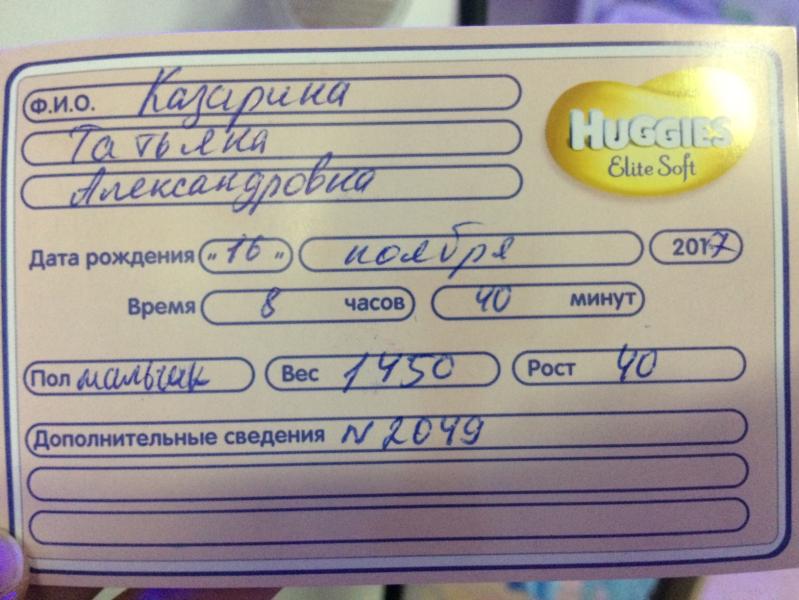 Ф.И.О. Казарина
Татьяна
Александровна
HUGGIES
Elite Soft
Дата рождения "16" ноября 2017
Время 8 часов 40 минут
Пол мальчик Вес 1450 Рост 40
Дополнительные сведения N 2049